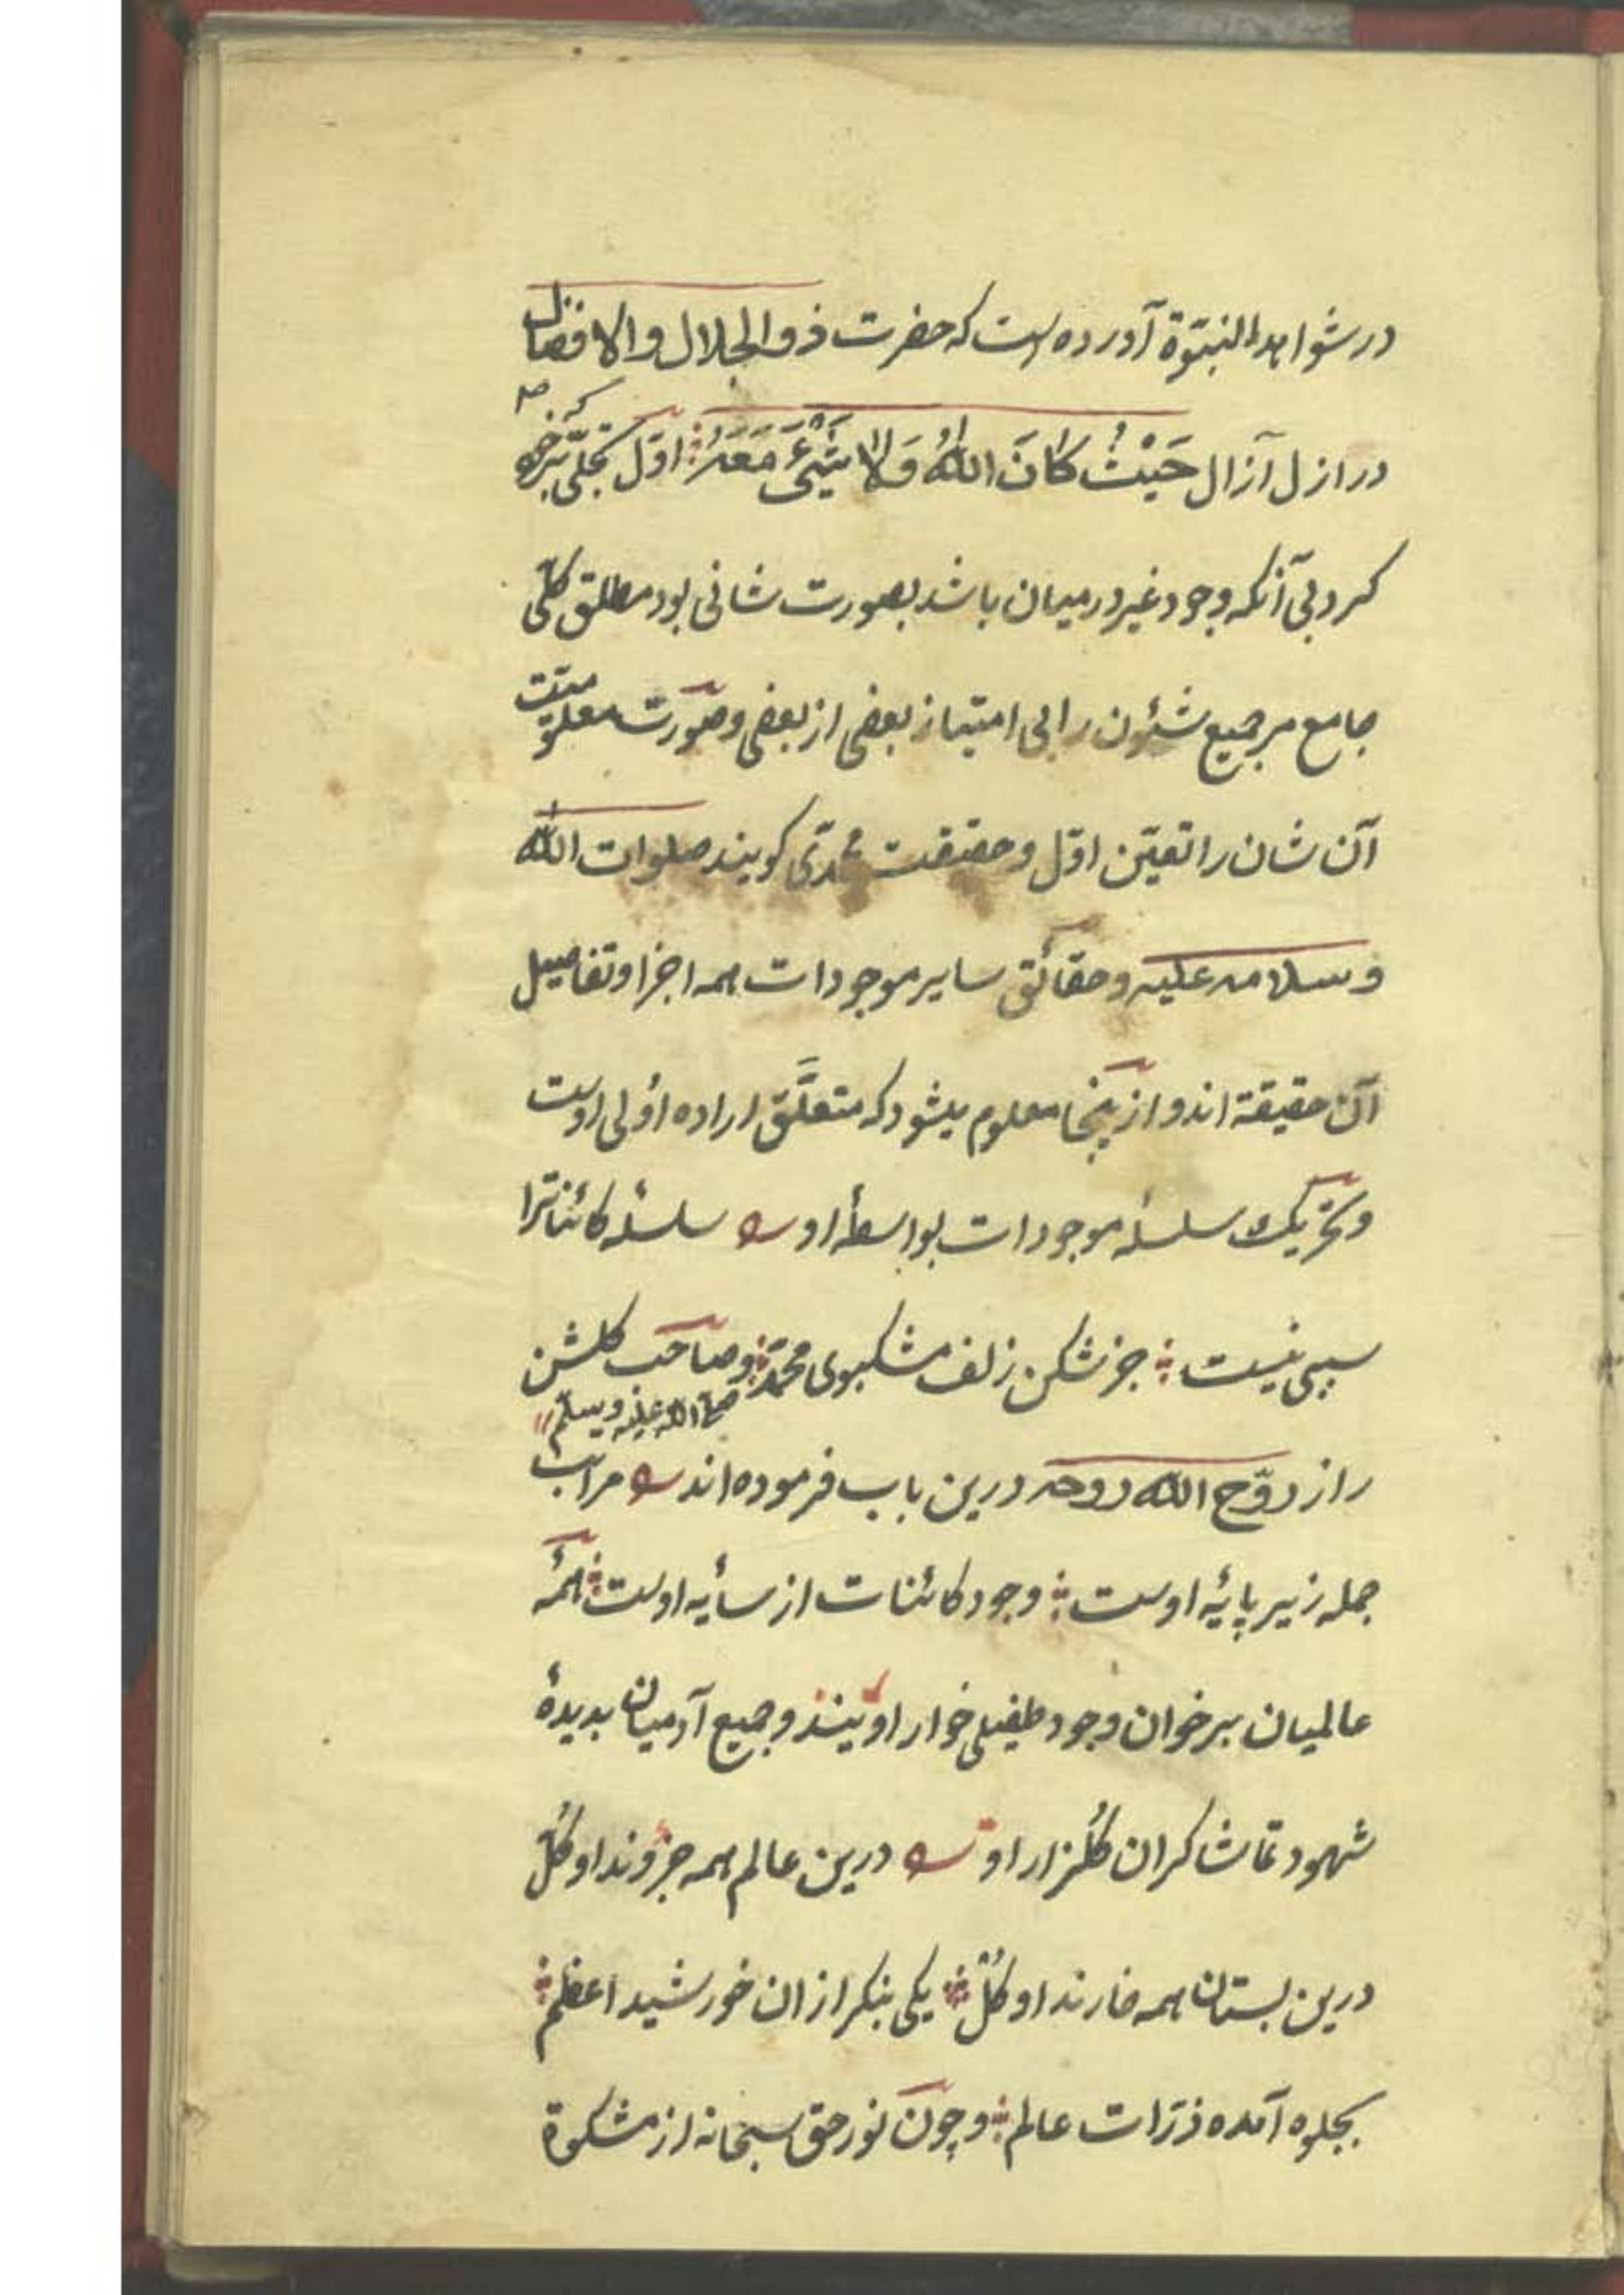 در شواهد النبّوة آورده است که حضرت ذو الجلال والافضال
در ازل آزال حَیْثُ کَانَ اللّٰهُ وَلَا شَیْئَ مَعَهُ اوّل تجلّی که برخود
کرد بی آنکه وجود غیر درمیان باشد بصورت شانی بود مطلق کلّی
جامع مر جمیع شئون را بی امتیاز بعضی از بعضی وصورت معلومیّت
آن شان را تعیّن اوّل وحقیقت محمدّی کویند صلوات اللّٰه
وسلامه علیه وحقائق سایر موجودات همه اجزا وتفاصیل
آن حقیقة اند و ازینجا معلوم میشود که متعلَّق اراده اُولی اوست
وتحریک سلسلۀ موجودات بواسطۀ او سلسلۀ کائناترا
سببی نیست جز شکن زلف مشکبوی محمّد وصاحب کلشن
صلی اللّٰه علیه وسلّم
راز روّح اللّٰه روحه درین باب فرموده اند مراتب
جمله زیر پایۀ اوست وجود کائنات از سایۀ اوست همۀ
عالمیان بر خوان وجود طفیلی خوار اویند وجمیع آدمیان بدیدۀ
شهود تماشاکران کُلزار او درین عالم همه جزؤند او کُلّ
درین بستان همه خارند او کُلّ یکی بنکر از ان خورشید اعظم
بجلوه آمده ذرّات عالم وچون نور حق سبحانه از مشکوة